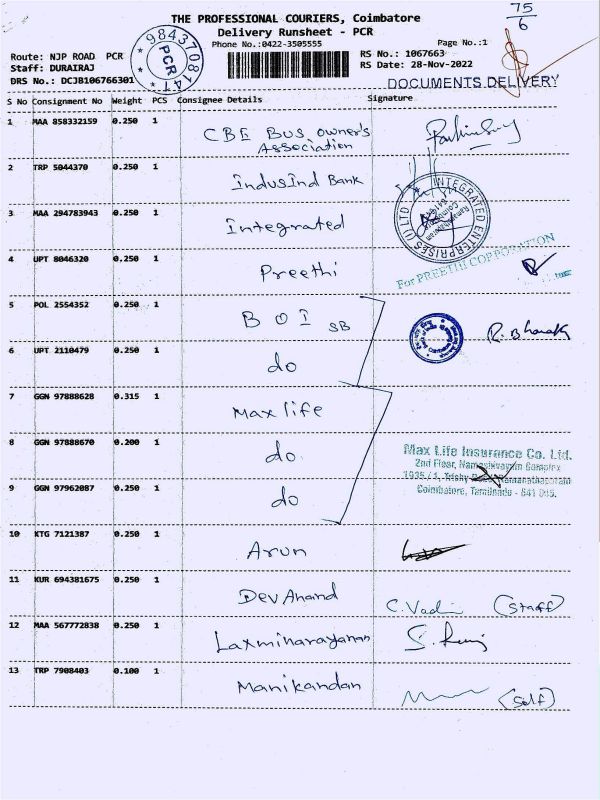 75
6
THE PROFESSIONAL COURIERS, Coimbatore
Delivery Runsheet - PCR
Phone No.:0422-3505555
Page No.:1
Route: NJP ROAD PCR
Staff: DURAIRAJ
DRS No.: DCJB106766301
9843708141
PCR
RS No.: 1067663
RS Date: 28-Nov-2022
DOCUMENTS DELIVERY
S No Consignment No Weight PCS Consignee Details Signature
1 MAA 858332159 0.250 1 CBE Bus owner's
Association
2 TRP 5044370 0.250 1 IndusInd Bank
3 MAA 294783943 0.250 1 Integrated
INTEGRATED ENTERPRISES (I) LTD
4 UPT 8046320 0.250 1 Preethi
For PREETHI COPPORATION
5 POL 2554352 0.250 1 BOI SB R. Bharath
6 UPT 2110479 0.250 1 do
7 GGN 97888628 0.315 1 Max life
8 GGN 97888670 0.200 1 do
Max Life Insurance Co. Ltd.
2nd Floor, Namasivayam Complex
1035/1, Trichy Road, Ramanathapuram
Coimbatore, Tamilnadu - 641 045.
9 GGN 97962087 0.250 1 do
10 KTG 7121387 0.250 1 Arun
11 KUR 694381675 0.250 1 Dev Anand C. (staff)
12 MAA 567772838 0.250 1 Laxminarayanan
13 TRP 7908403 0.100 1 Manikandan (self)